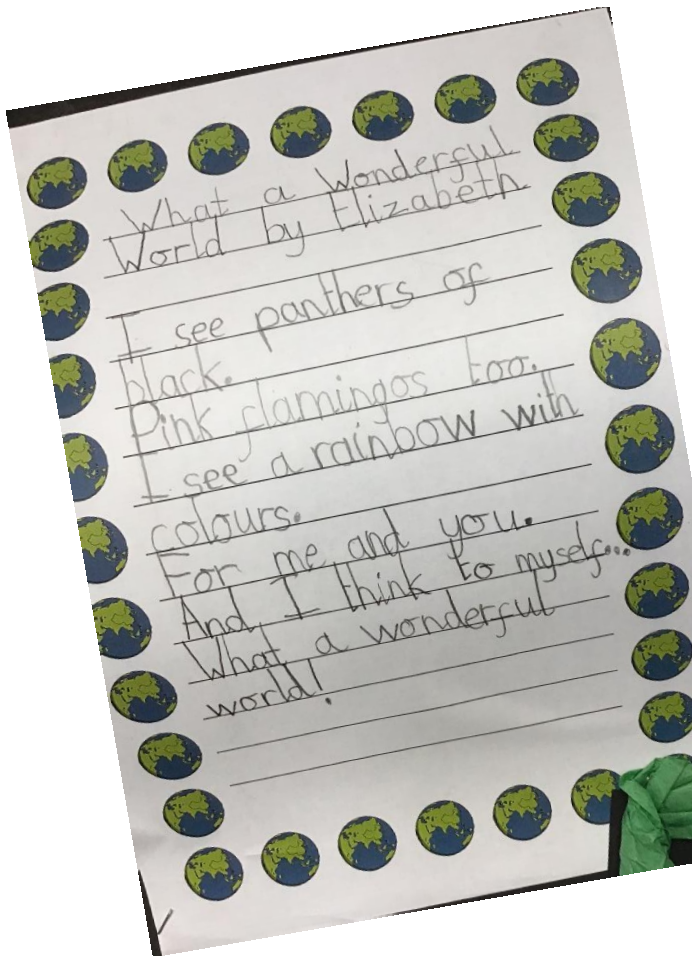 What a Wonderful
World by Elizabeth
I see panthers of
black.
Pink flamingos too.
I see a rainbow with
colours.
For me and you.
And I think to myself...
What a wonderful
world!